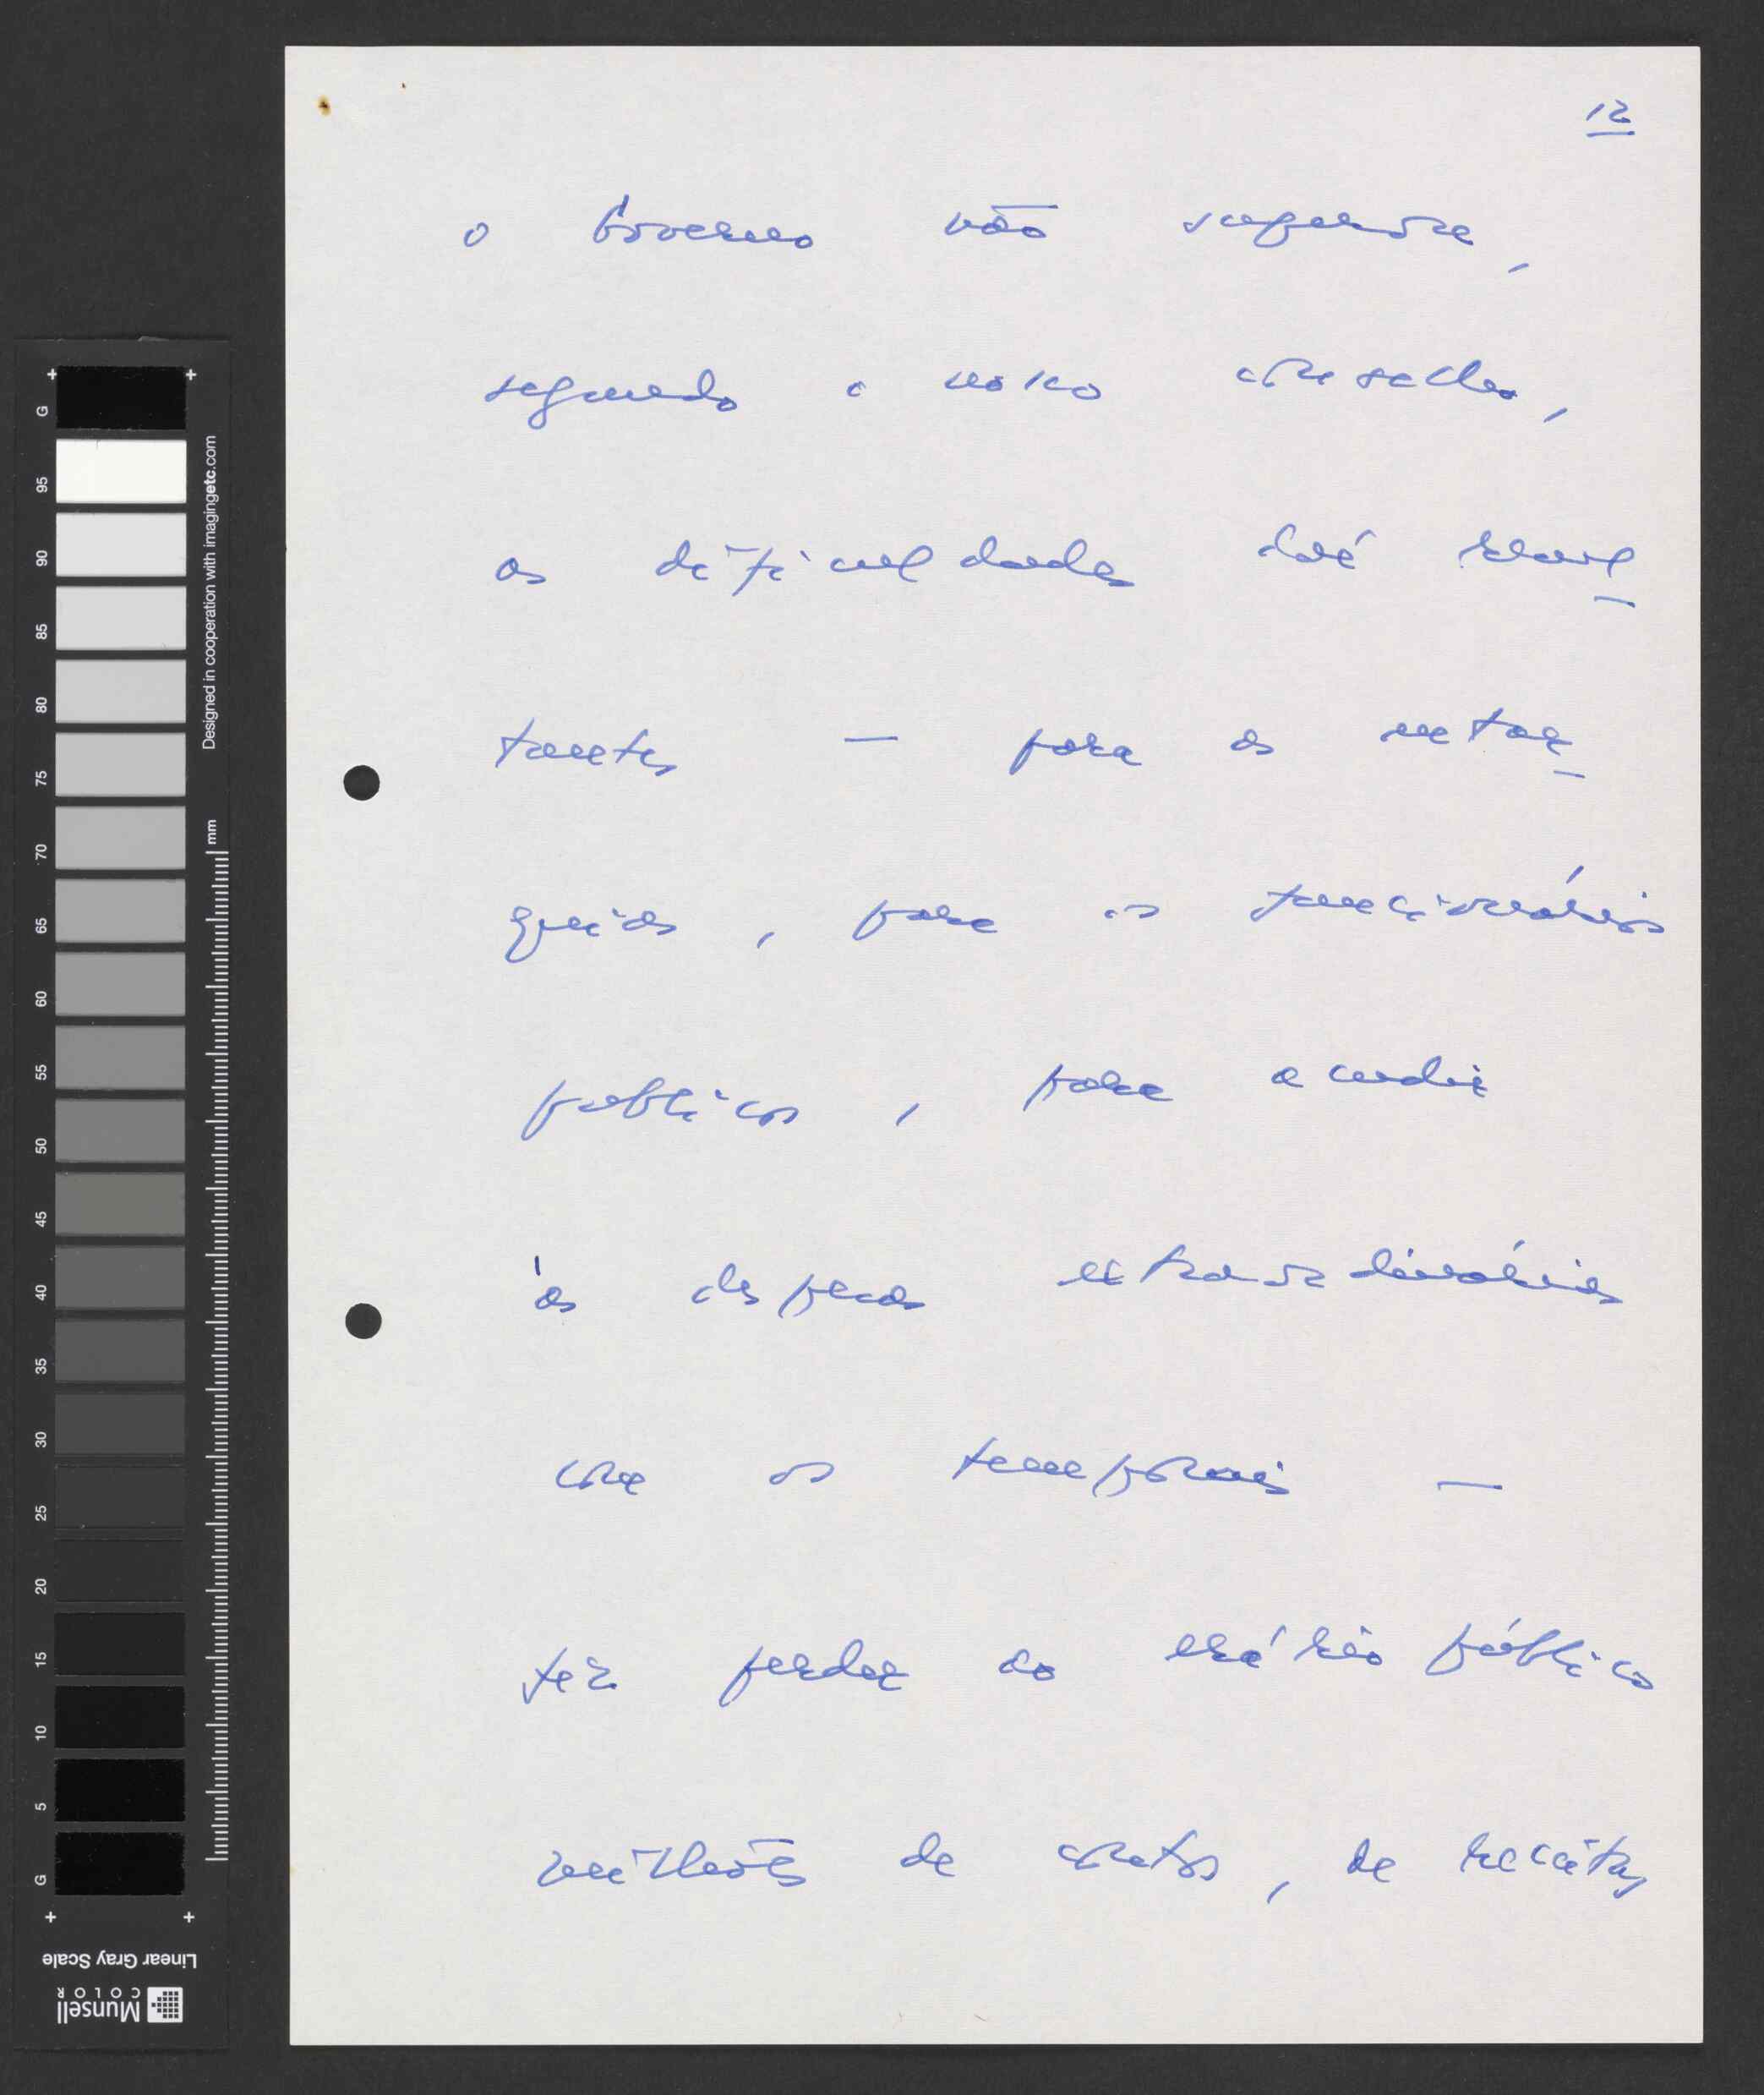 12
o Governo não superou,
segundo o nosso conselho,
as dificuldades daí resul-
tantes — para as
para os funcionários
publicos, para acudir
às despesas extraordinárias
com os temporais —
fez perder ao erário público
milhões de contos, de receitas
G
95
90
85
80
75
70
65
60
55
50
45
40
35
30
25
20
15
10
5
G
Designed in cooperation with imagingetc.com
mm
Linear Gray Scale
Munsell
COLOR